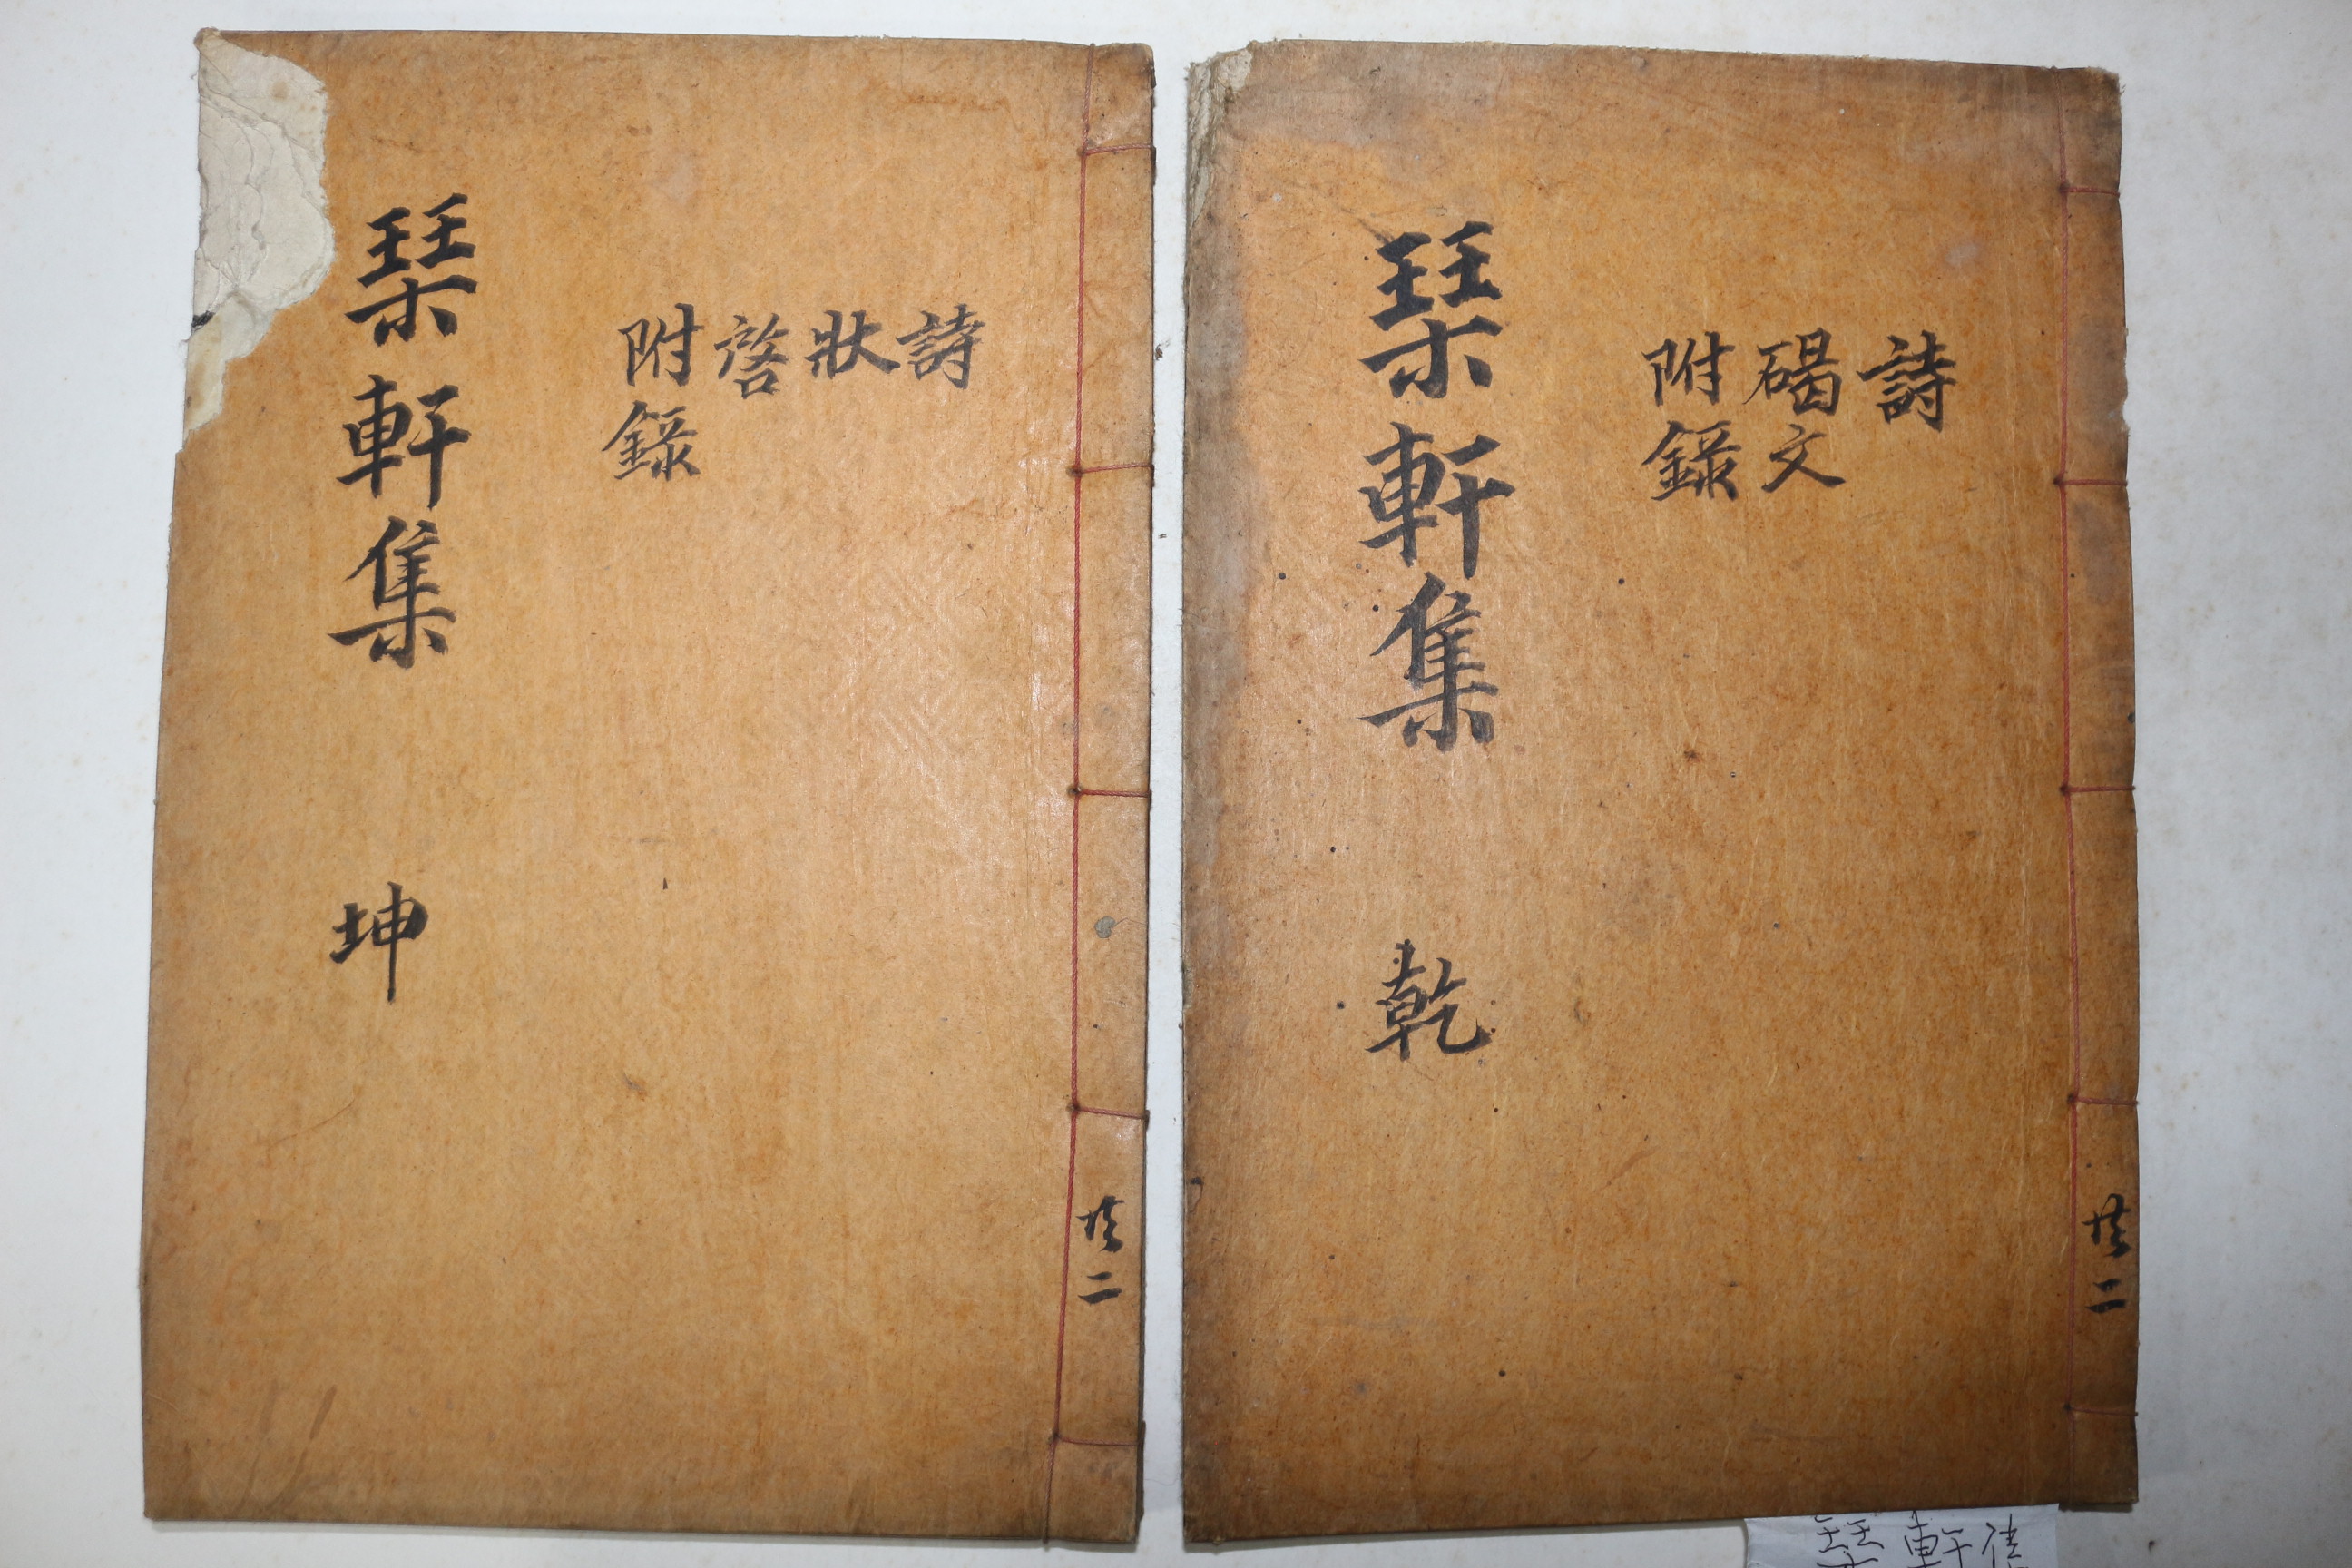 共二
詩
碣文
附錄
琹軒集 乾
共二
詩
狀
啓
附錄
琹軒集 坤